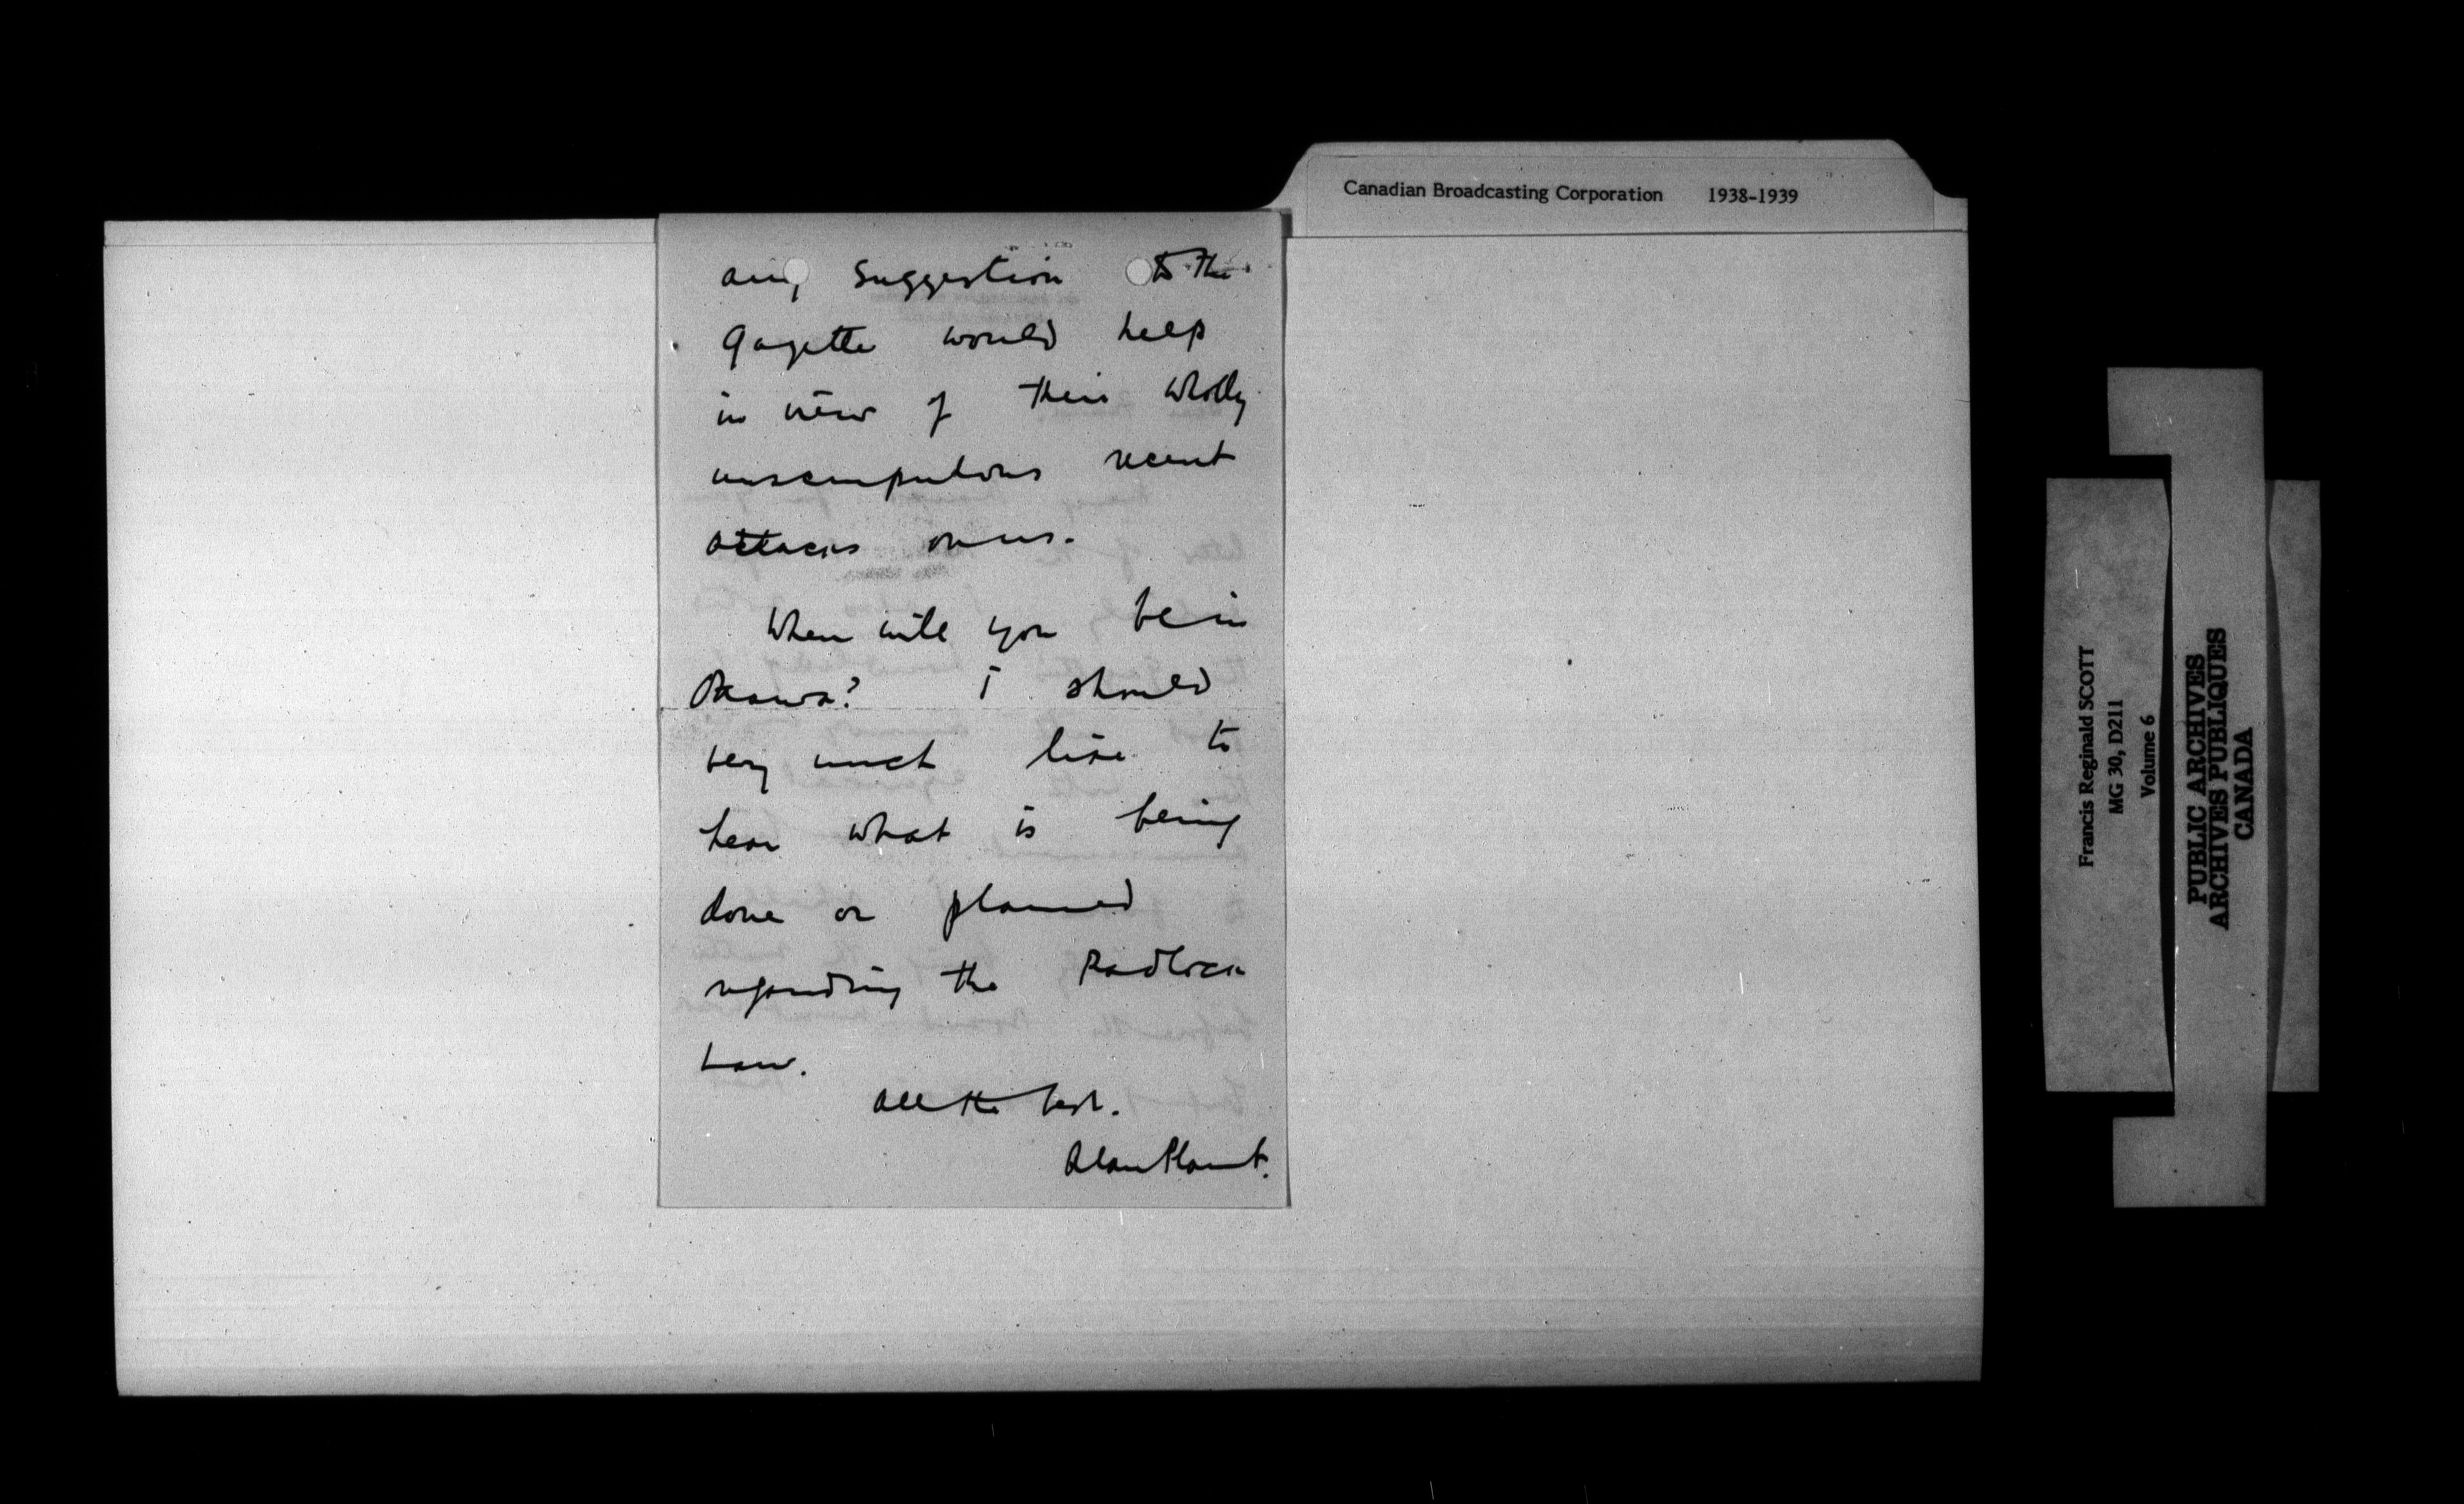 Canadian Broadcasting Corporation 1938-1939
any suggestion to the
Gazette would help
in view of their wholly
unscrupulous recent
attacks on us.
When will you be in
Ottawa? I should
very much like to
hear what is being
done or planned
regarding the Padlock
Law.
All the best.
Alan Plaunt.
Francis Reginald SCOTT
MG 30, D211
Volume 6
PUBLIC ARCHIVES
ARCHIVES PUBLIQUES
CANADA